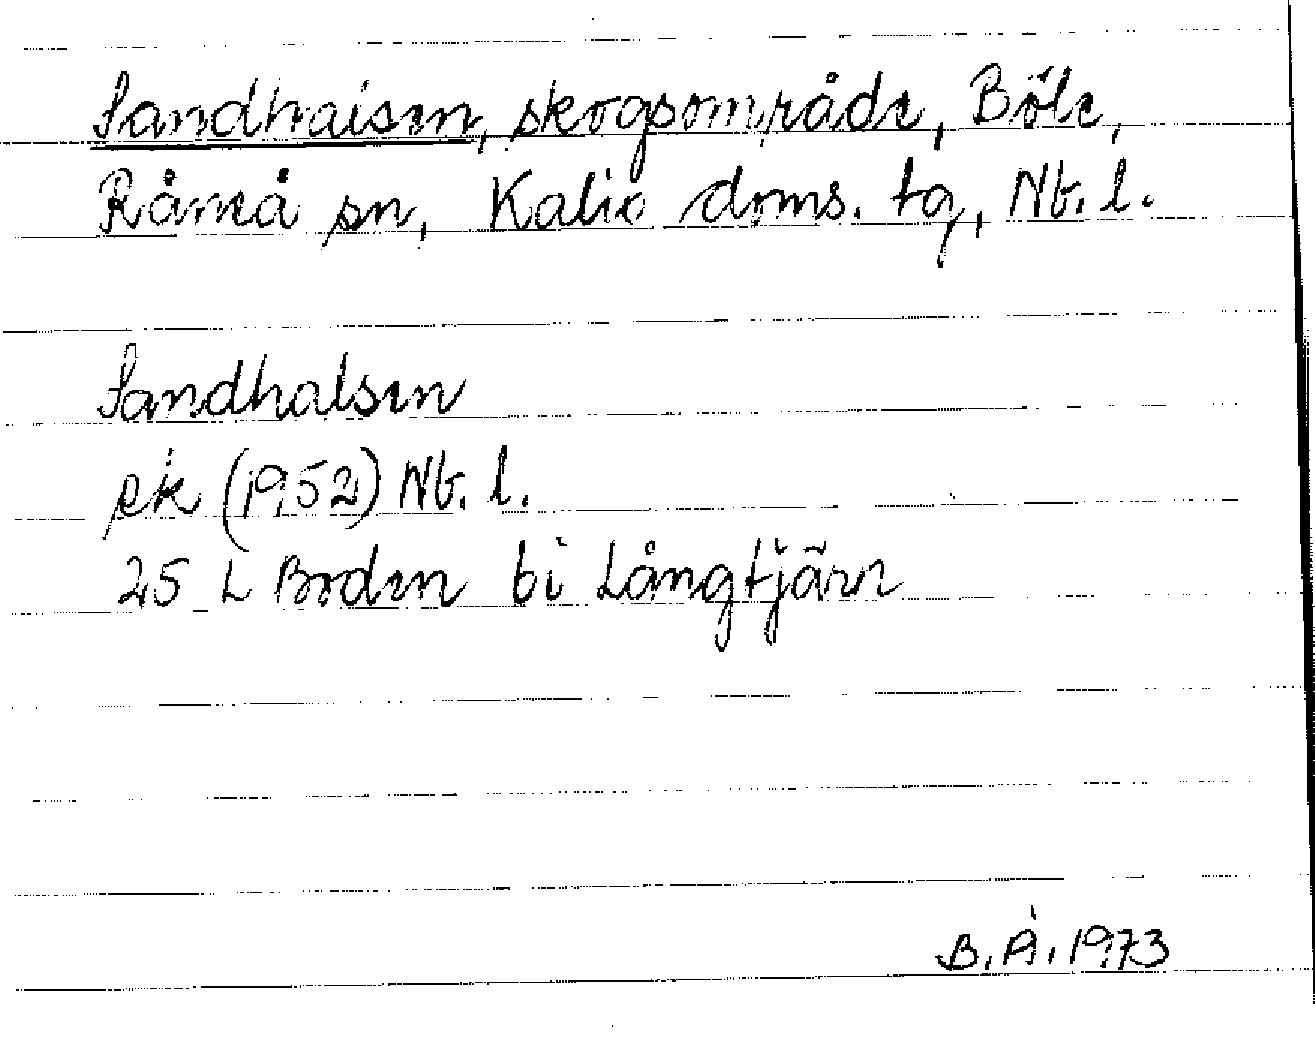 Sandhalsen, skogsområde, Böle,
Råneå sn, Kalix doms. tg, Nb. l.
Sandhalsen
ek (1952) Nb. l.
25 L Boden bi Långtjärn
B. Å. 1973